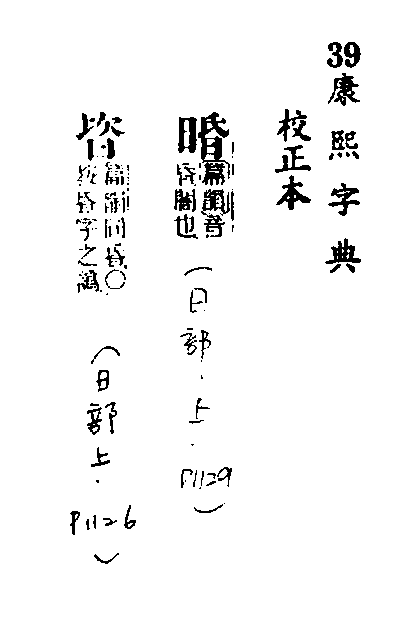 39康熙字典
校正本
篇韻音
昏闇也
(日部.上.P1129)
篇韻同昏○
按昏字之譌
(日部上.P1126)